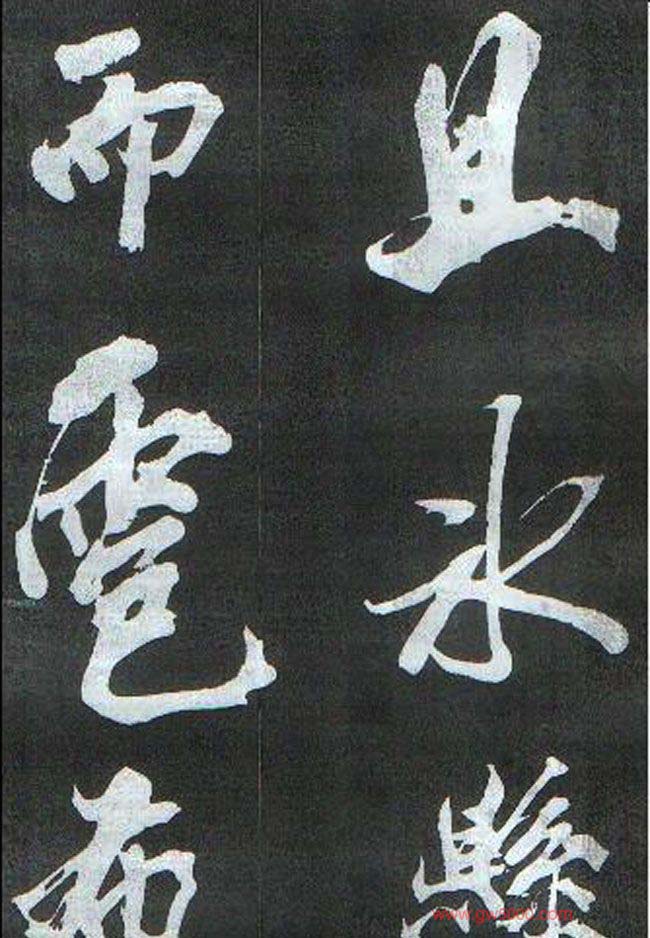 且冰縣
而雹布
www.gw8000.com